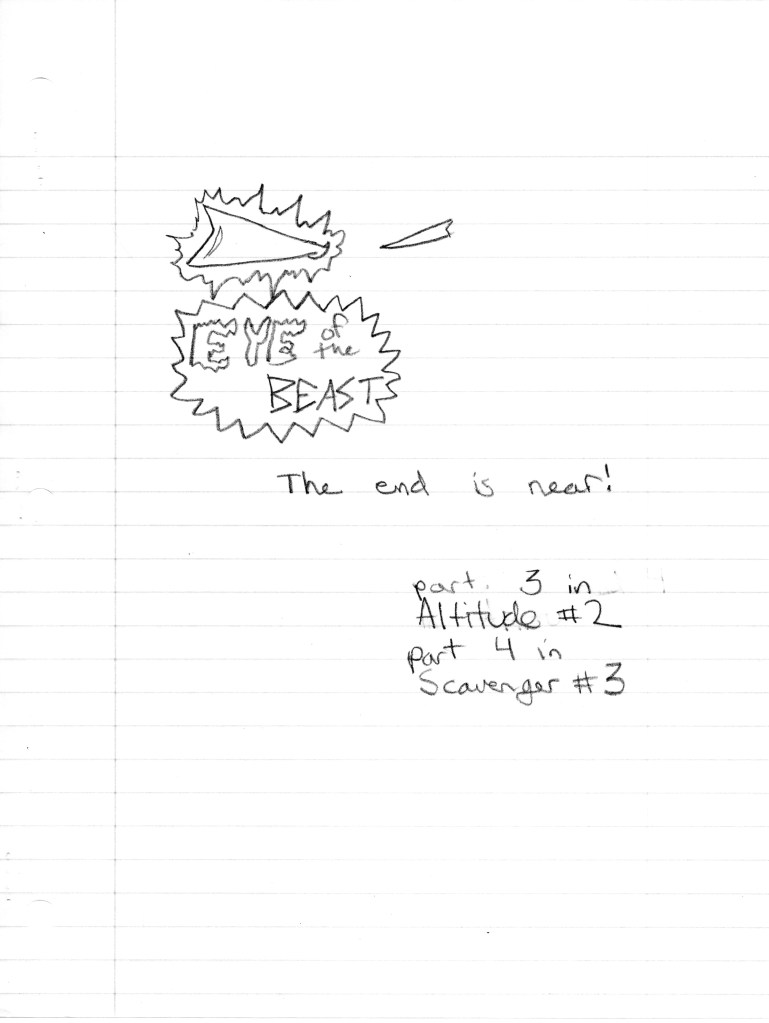 EYE of
the
BEAST
The end is near!
part 3 in
Altitude #2
part 4 in
Scavenger #3